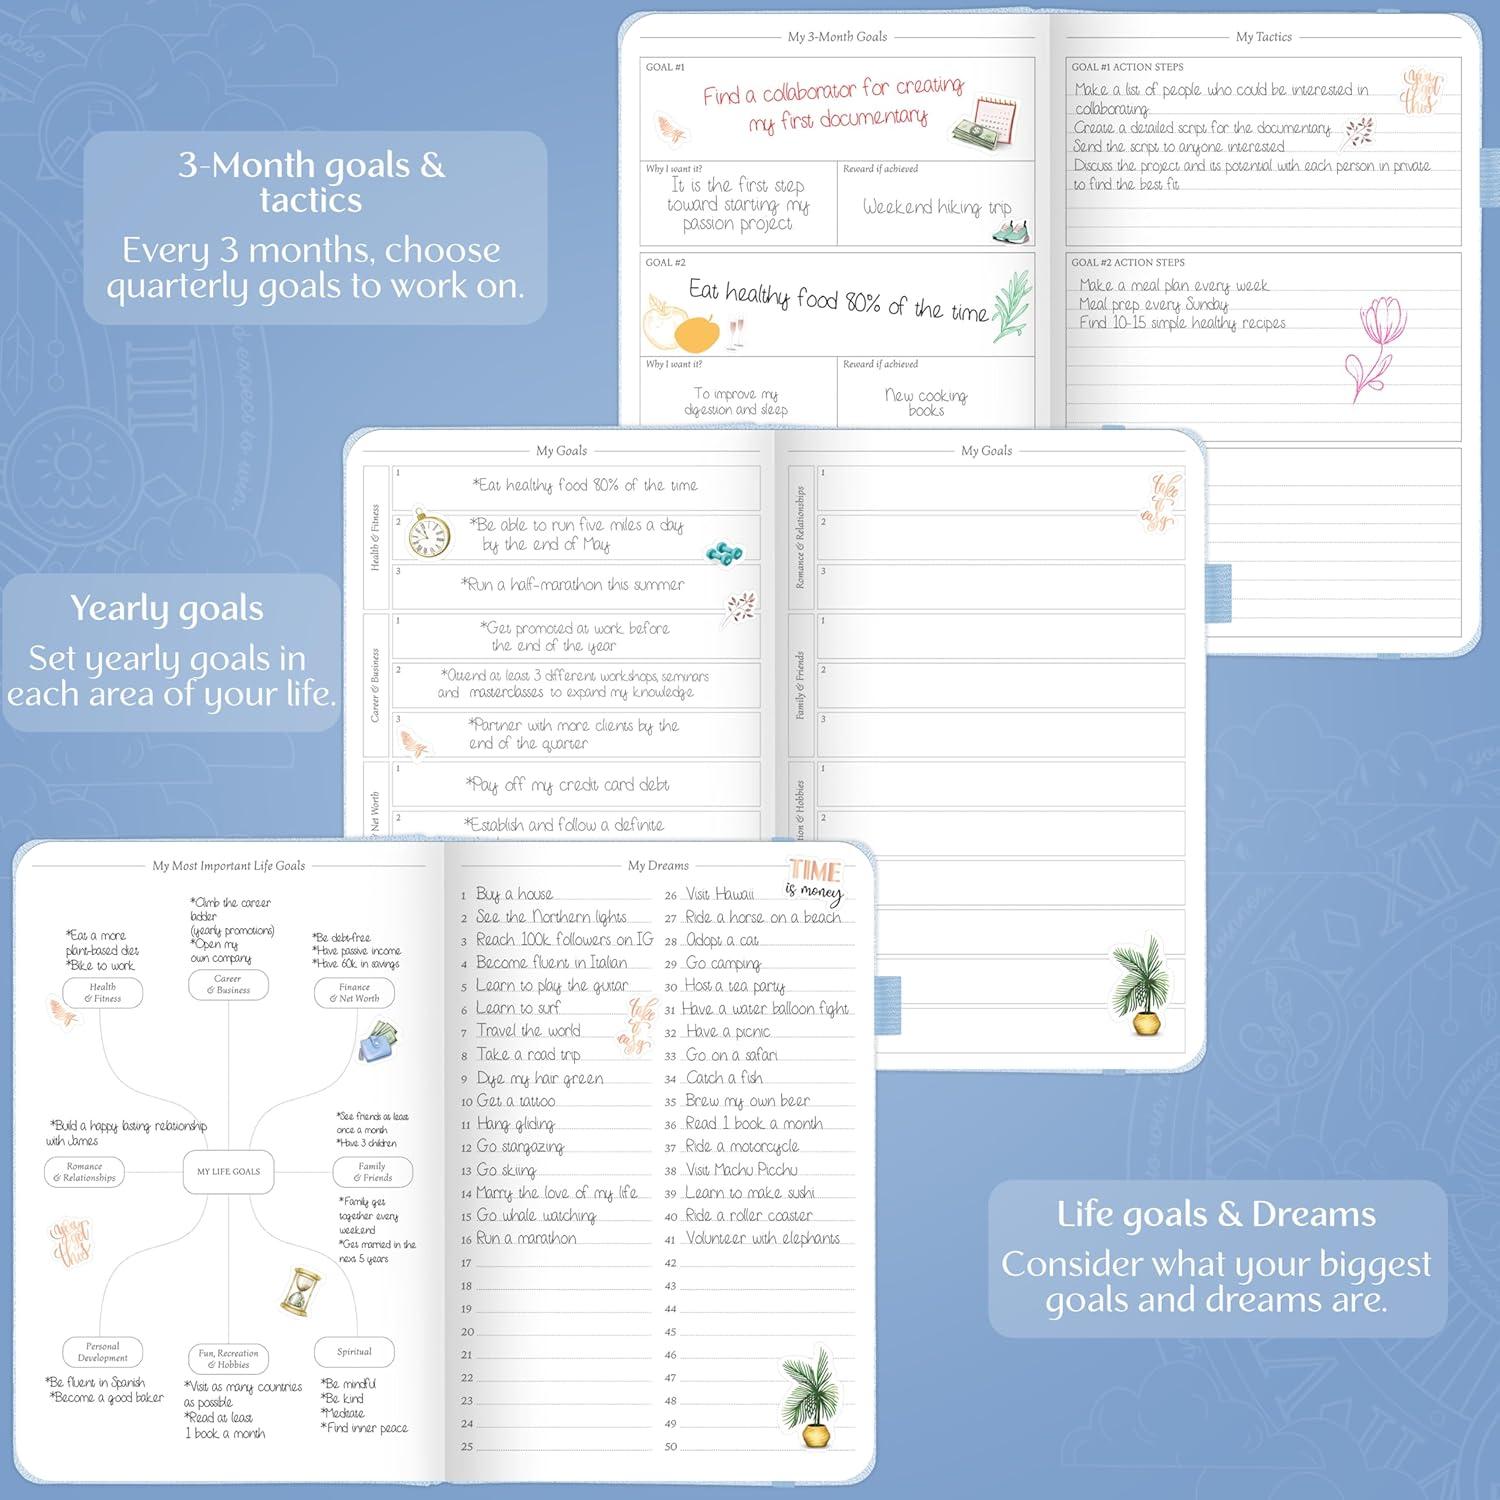 3-Month goals &
tactics
Every 3 months, choose
quarterly goals to work on.
My 3-Month Goals
GOAL #1
Find a collaborator for creating
my first documentary
Why I want it?
It is the first step
toward starting my
passion project
Reward if achieved
Weekend hiking trip
GOAL #2
Eat healthy food 80% of the time
Why I want it?
To improve my
digestion and sleep
Reward if achieved
New cooking
books
My Tactics
GOAL #1 ACTION STEPS
Make a list of people who could be interested in
collaborating
Create a detailed script for the documentary
Send the script to anyone interested
Discuss the project and its potential with each person in private
to find the best fit
you
got
this
GOAL #2 ACTION STEPS
Make a meal plan every week
Meal prep every Sunday
Find 10-15 simple healthy recipes
Yearly goals
Set yearly goals in
each area of your life.
My Goals
Health & Fitness
1
*Eat healthy food 80% of the time
2
*Be able to run five miles a day
by the end of May
3
*Run a half-marathon this summer
Career & Business
1
*Get promoted at work before
the end of the year
2
*Attend at least 3 different workshops, seminars
and masterclasses to expand my knowledge
3
*Partner with more clients by the
end of the quarter
Net Worth
1
*Pay off my credit card debt
2
*Establish and follow a definite
My Goals
Romance & Relationships
1
take
it
easy
2
3
Family & Friends
1
2
3
& Hobbies
1
2
Life goals & Dreams
Consider what your biggest
goals and dreams are.
My Most Important Life Goals
*Eat a more
plant-based diet
*Bike to work
Health
& Fitness
*Climb the career
ladder
(yearly promotions)
*Open my
own company
Career
& Business
*Be debt-free
*Have passive income
*Have 60k in savings
Finance
& Net Worth
*Build a happy lasting relationship
with James
Romance
& Relationships
MY LIFE GOALS
*See friends at least
once a month
*Have 3 children
Family
& Friends
*Family get
together every
weekend
*Get married in the
next 5 years
you
got
this
Personal
Development
*Be fluent in Spanish
*Become a good baker
Fun, Recreation
& Hobbies
*Visit as many countries
as possible
*Read at least
1 book a month
Spiritual
*Be mindful
*Be kind
*Meditate
*Find inner peace
My Dreams
TIME
is money
1 Buy a house
2 See the Northern lights
3 Reach 100k followers on IG
4 Become fluent in Italian
5 Learn to play the guitar
6 Learn to surf
7 Travel the world
8 Take a road trip
9 Dye my hair green
10 Get a tattoo
11 Hang gliding
12 Go stargazing
13 Go skiing
14 Marry the love of my life
15 Go whale watching
16 Run a marathon
17
18
19
20
21
22
23
24
25
take
it
easy
26 Visit Hawaii
27 Ride a horse on a beach
28 Adopt a cat
29 Go camping
30 Host a tea party
31 Have a water balloon fight
32 Have a picnic
33 Go on a safari
34 Catch a fish
35 Brew my own beer
36 Read 1 book a month
37 Ride a motorcycle
38 Visit Machu Picchu
39 Learn to make sushi
40 Ride a roller coaster
41 Volunteer with elephants
42
43
44
45
46
47
48
49
50